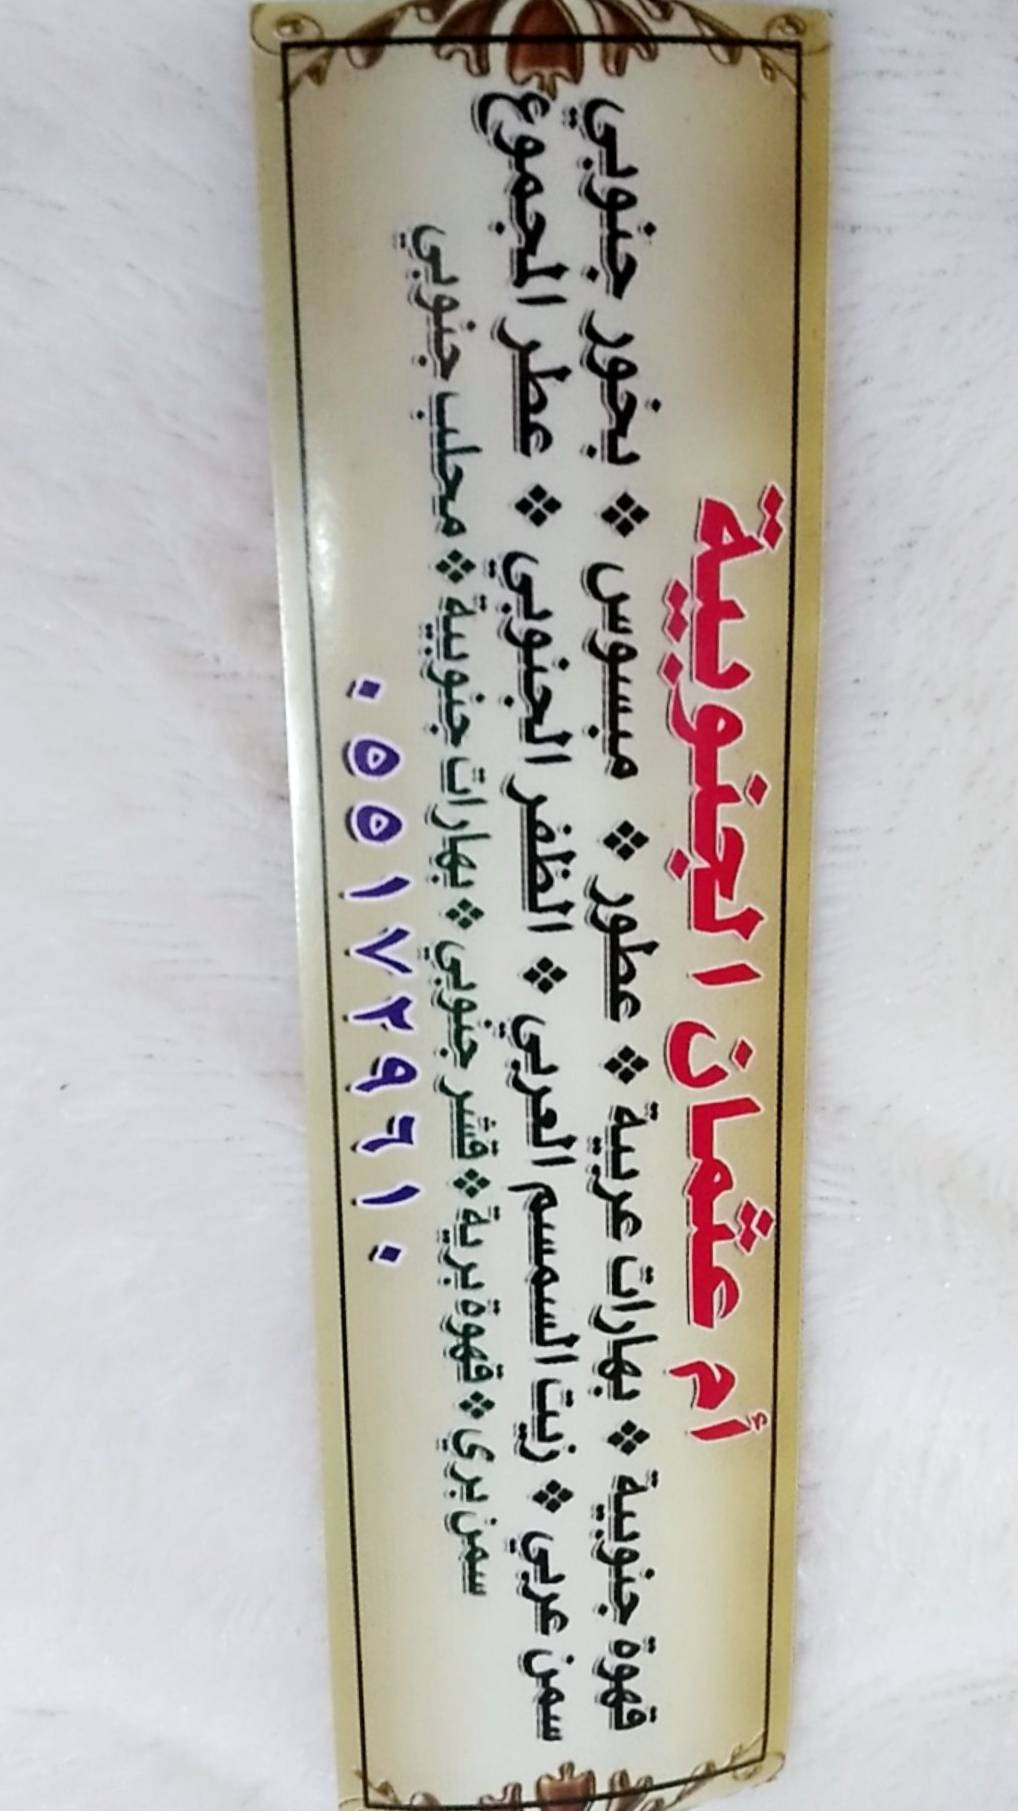 أم عثمان الجنوبية
قهوة جنوبية ❖ بهارات عربية ❖ عطور ❖ مبسوس ❖ بخور جنوبي
سمن عربي ❖ زيت السمسم العربي ❖ الظفر الجنوبي ❖ عطر المجموع
سمن بري ❖ قهوة برية ❖ قشر جنوبي ❖ بهارات جنوبية ❖ محلب جنوبي
٠٥٥١٧٢٩٦١٠